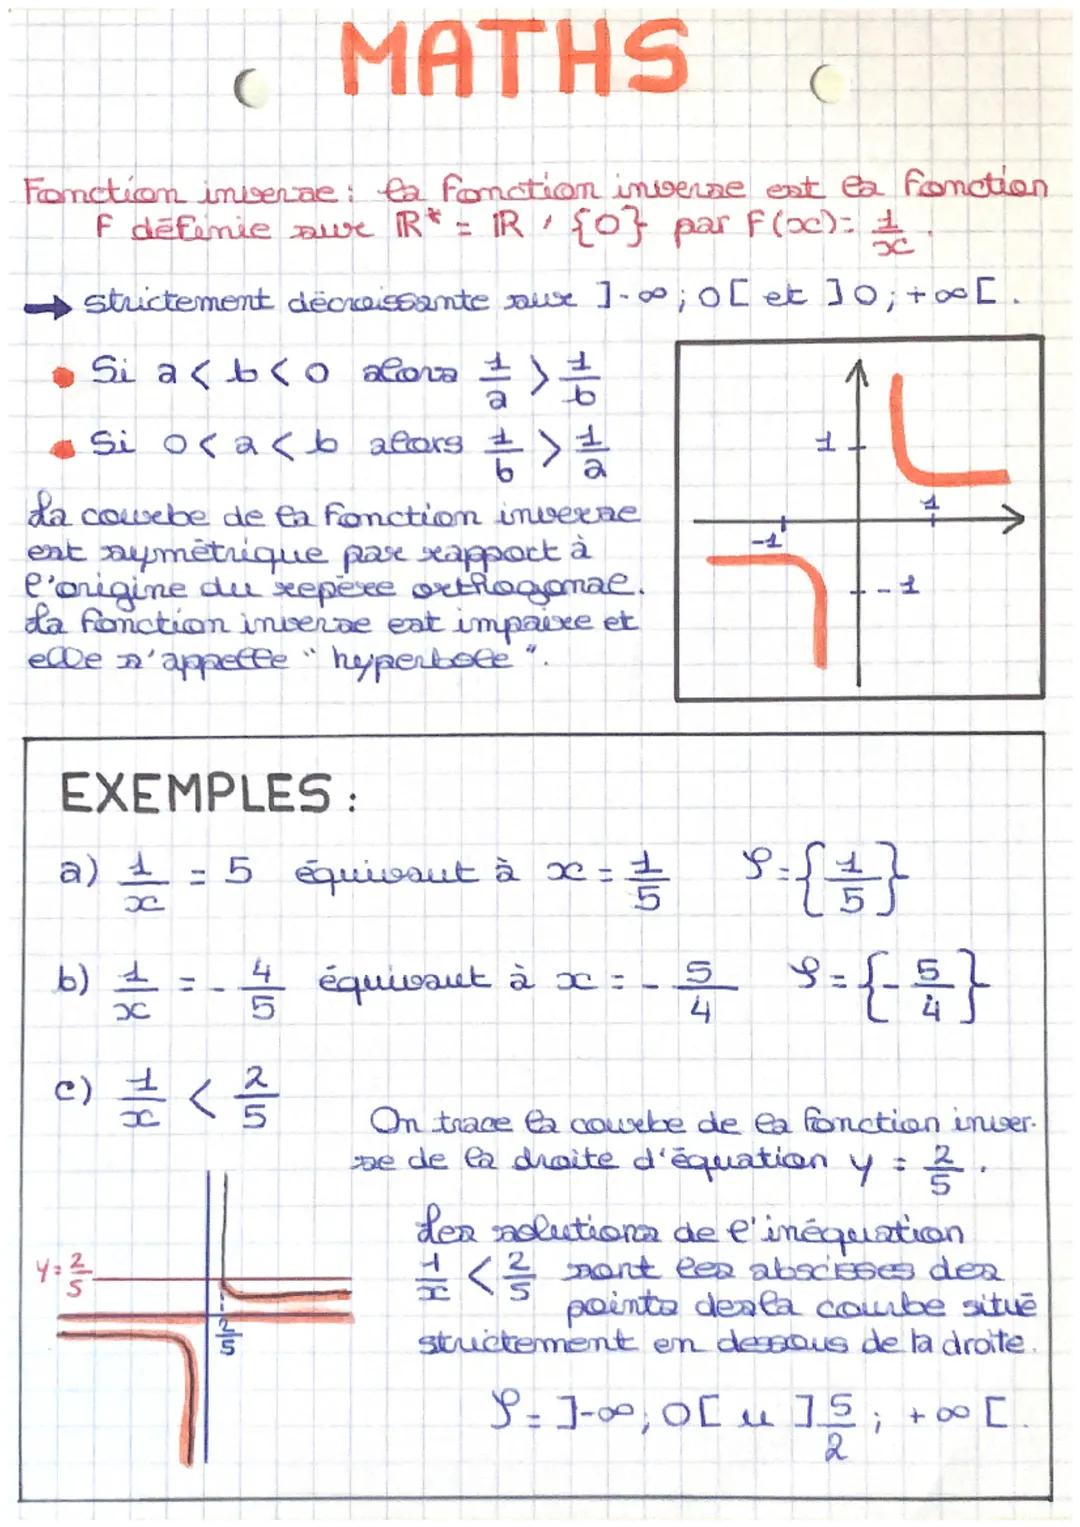 MATHS
Fonction inverse : la fonction inverse est la fonction
F définie sur ℝ* = ℝ \ {0} par F(x) = 1/x .
→ strictement décroissante sur ]-∞ ; 0[ et ]0 ; +∞[ .
• Si a < b < 0 alors 1/a > 1/b
• Si 0 < a < b alors 1/b > 1/a
La courbe de la fonction inverse
est symétrique par rapport à
l'origine du repère orthogonal.
La fonction inverse est impaire et
elle s'appelle " hyperbole ".
1
1
-1
-1
EXEMPLES :
a) 1/x = 5 équivaut à x = 1/5 S = {1/5}
b) 1/x = - 4/5 équivaut à x = - 5/4 S = {- 5/4}
c) 1/x < 2/5
On trace la courbe de la fonction inver-
se de la droite d'équation y = 2/5 .
Les solutions de l'inéquation
1/x < 2/5 sont les abscisses des
points de la courbe situé
strictement en dessous de la droite.
S = ]-∞ ; 0[ u ] 5/2 ; +∞ [ .
y = 2/5
2/5